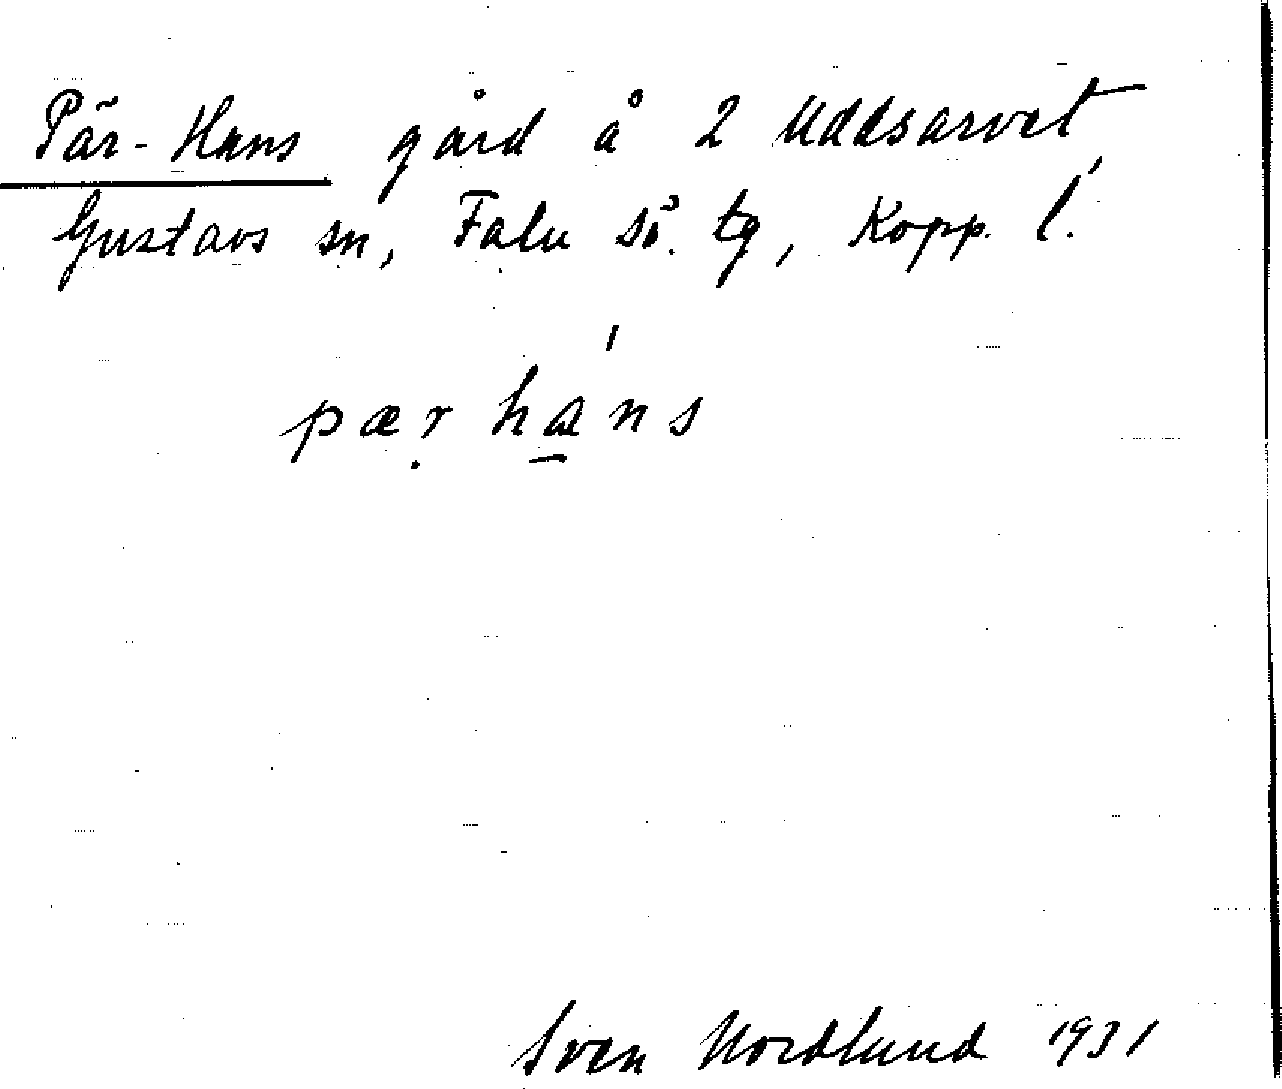 Pär-Hans gård å 2 Uddsarvet
Gustavs sn, Falu sö. tg, Kopp. l.
pær hans
Sven Nordlund 1931